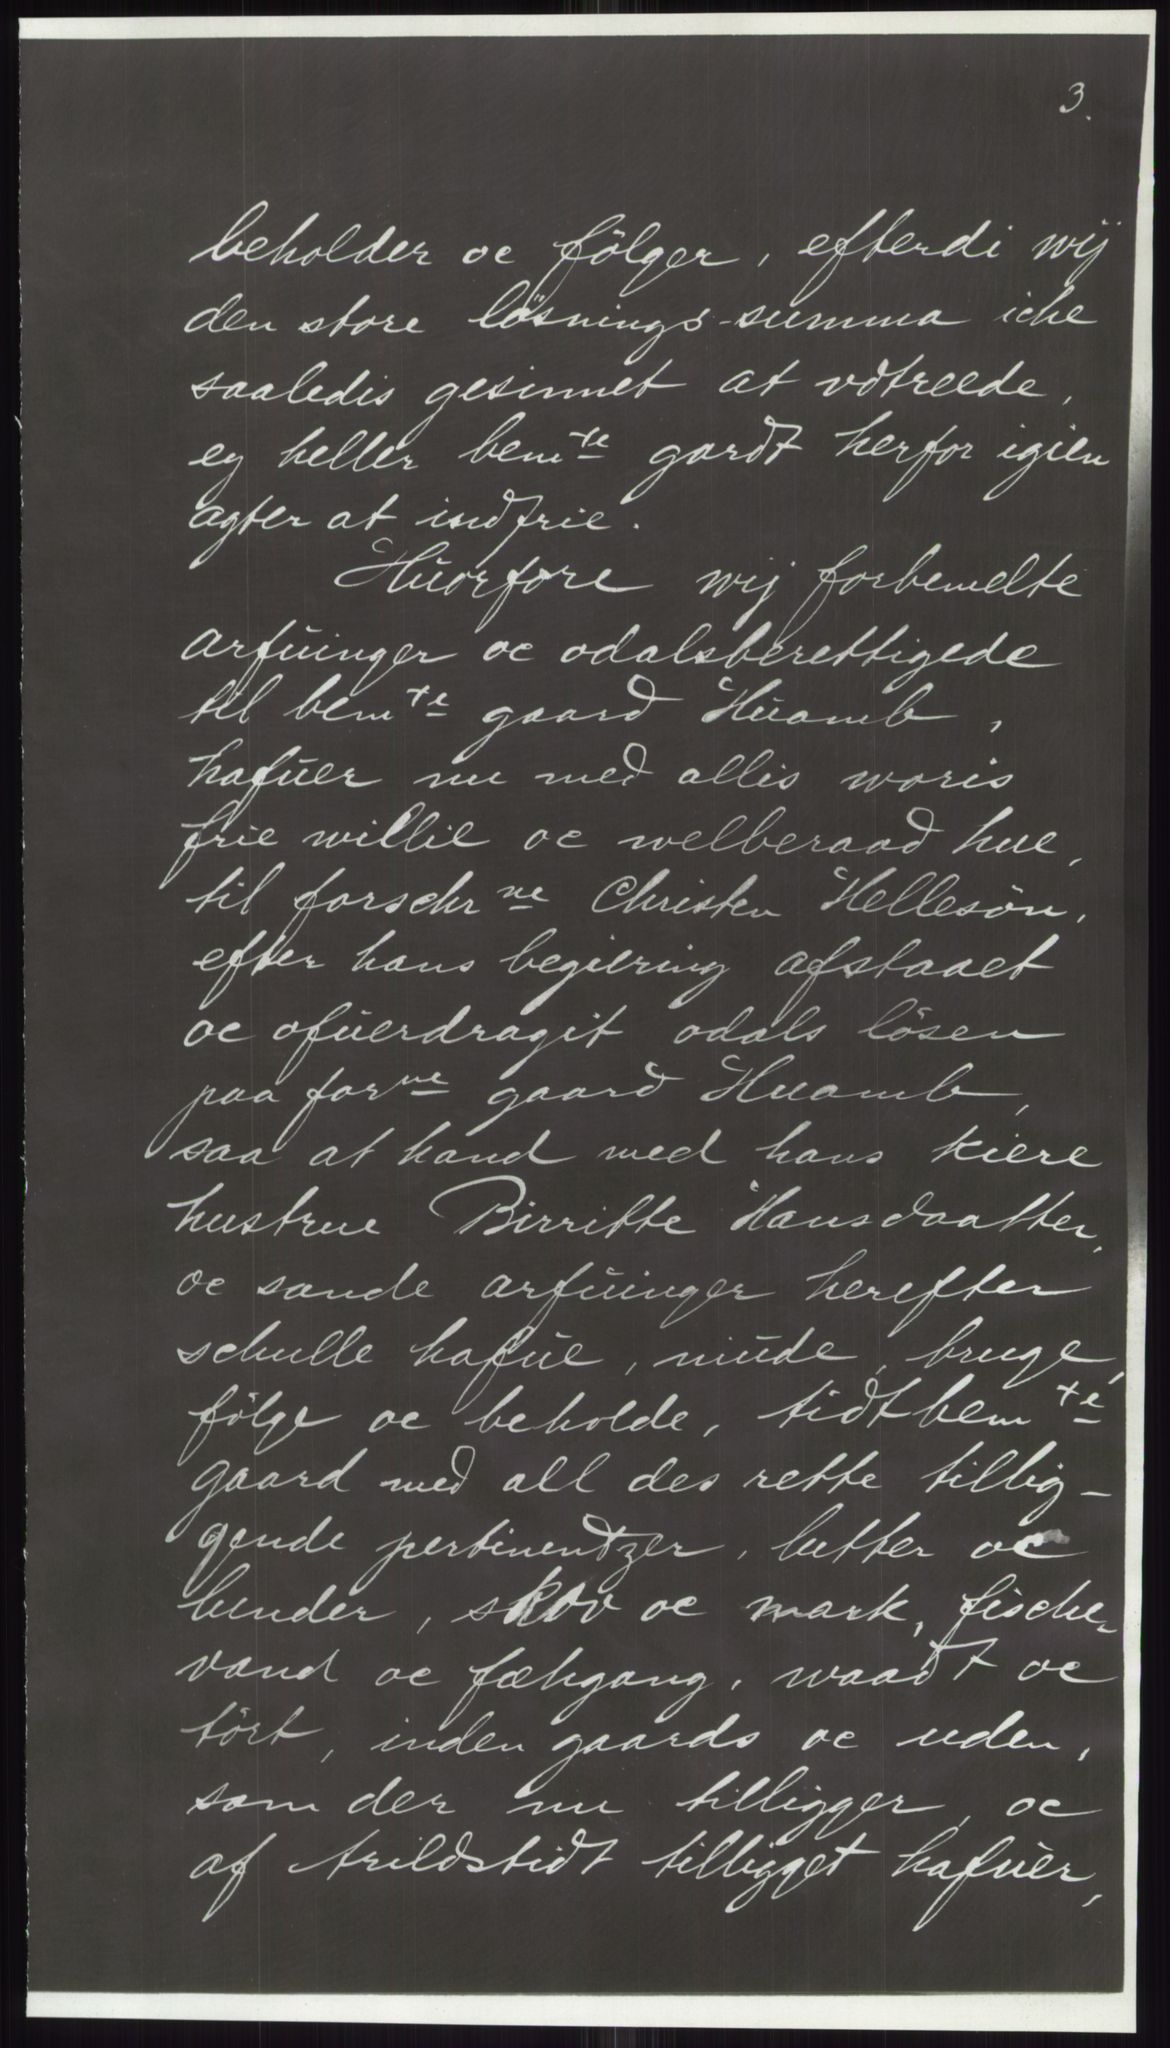 3.
beholder oc fölger, efterdi wij
den store lösnings-summa iche
saaledis gesinnet at vdtreede,
ey heller bem<sup>te</sup> gardt herfor igien
agter at indfrie.
Hŭorfore wij forbemelte
arfŭinger oc odalsberettigede
til bem<sup>te</sup> gaard Hŭamb,
hafŭer nu med allis woris
frie willie oc welberaad hue,
til forschr<sup>ne</sup> Christen Hellesön,
efter hans begiering afstaaet
oc ofŭerdragit odals lösen
paa for<sup>ne</sup> gaard Huamb,
saa at hand med hans kiere
hustrue Birritte Hansdaatter,
oc sande arfŭinger herefter
schulle hafŭe, niŭde, bruge,
fölge oc beholde, tidtbem<sup>te</sup>
gaard med all des rette tillig-
gende pertinendtzer, lutter oc
lunder, skov oc mark, fische-
vand oc fæhgang, waadt oc
tört, inden gaards oc uden,
som der nu tilligger, oc
af Arildstidt tilligget hafŭer,